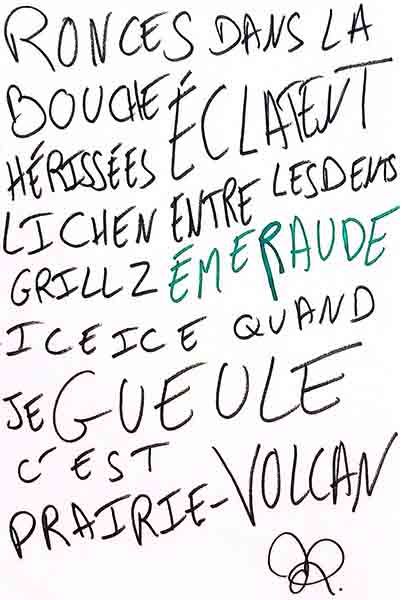 RONCES DANS LA
BOUCHE ÉCLATENT
HÉRISSÉES LES DENTS
LICHEN ENTRE
GRILLZ ÉMERAUDE
ICE ICE QUAND
JE GUEULE
C'EST
PRAIRIE-VOLCAN